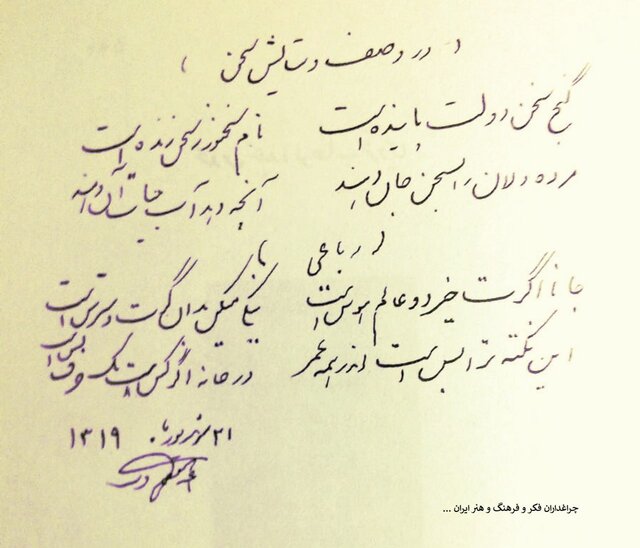 ( در وصف و ستایش سخن )
گنج سخن دولت پاینده است نام سخنور ز سخن زنده است
مرده دلان را سخن جان دهند آنچه دهد آب حیات آن دهند
( رباعی )
جانا اگرت خیر دو عالم هوس است نیکی میکن بدان گرت دسترس است
این نکته ترا بس است اندر همه عمر در خانه اگر کس است یک حرف بس است
۳۱ شهریور ماه ۱۳۱۹
چراغداران فکر و فرهنگ و هنر ایران ...